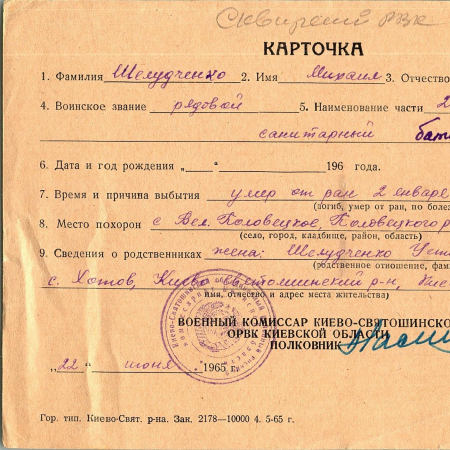 Сквирский РВК
КАРТОЧКА
1. Фамилия Шелудченко 2. Имя Михаил 3. Отчество
4. Воинское звание рядовой 5. Наименование части 2
санитарный бат
6. Дата и год рождения „___“ 196 года.
7. Время и причина выбытия умер от ран 2 января
(погиб, умер от ран, по боле
8. Место похорон с Вел. Половецкое, Половецкого р
(село, город, кладбище, район, область)
9. Сведения о родственниках жена: Шелудченко Уст
(родственное отношение, фам
с. Хотов, Киево Святошинский р-н, Кие
имя, отчество и адрес места жительства)
ВОЕННЫЙ КОМИССАР КИЕВО-СВЯТОШИНСКО
ОРВК КИЕВСКОЙ ОБЛАСТИ
ПОЛКОВНИК
„22“ июня 1965 г.
Гор. тип. Киево-Свят. р-на. Зак. 2178—10000 4. 5-65 г.